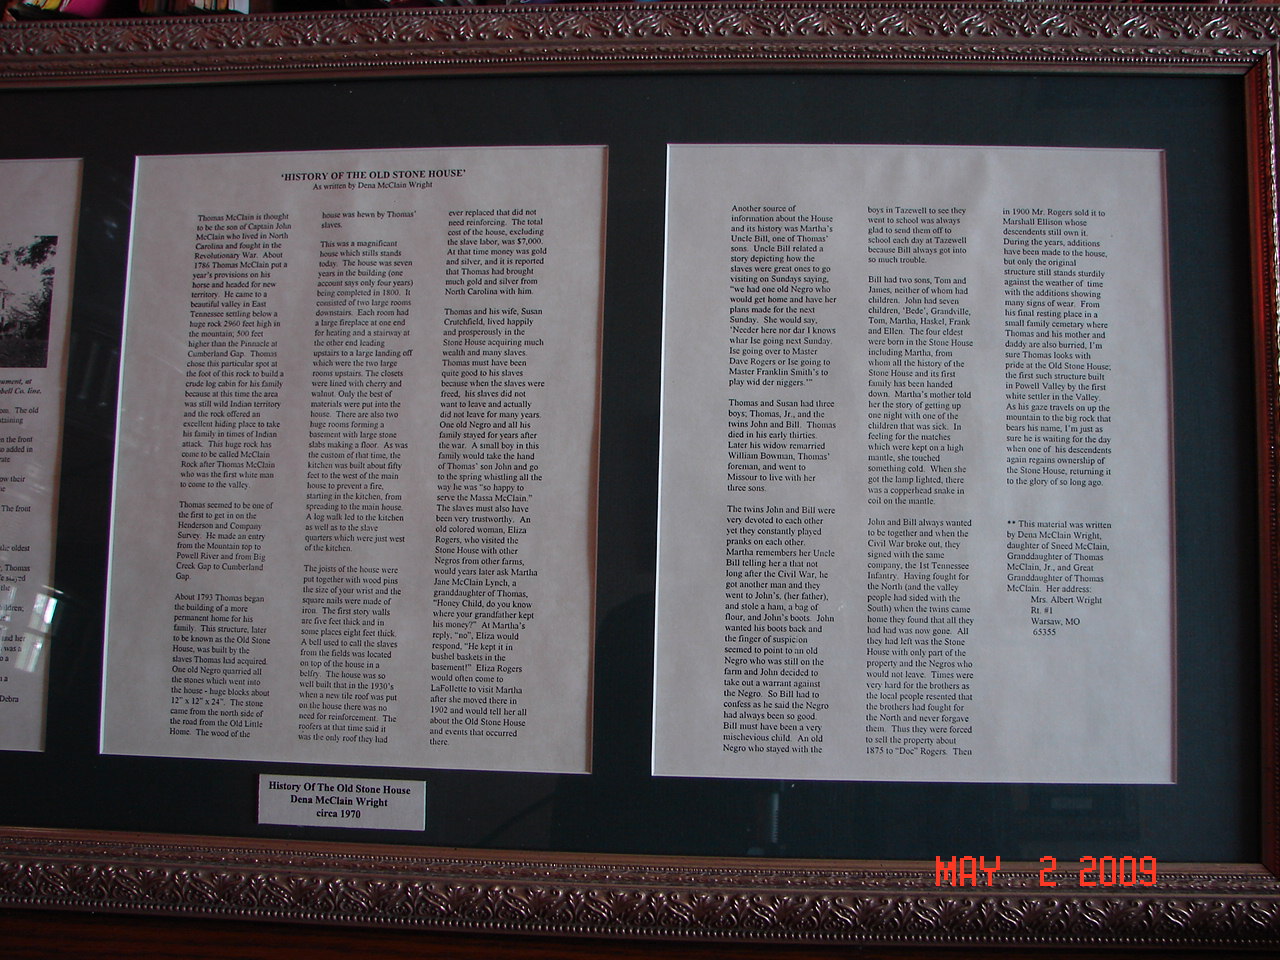 ument, at
bell Co. line.
om. The old
taining
n the front
o added in
rate
ow their
e
The front
the oldest
, Thomas
the
ildren;
and her
was a
o a
Debra
'HISTORY OF THE OLD STONE HOUSE'
As written by Dena McClain Wright
Thomas McClain is thought
to be the son of Captain John
McClain who lived in North
Carolina and fought in the
Revolutionary War. About
1786 Thomas McClain put a
year's provisions on his
horse and headed for new
territory. He came to a
beautiful valley in East
Tennessee settling below a
huge rock 2960 feet high in
the mountain; 500 feet
higher than the Pinnacle at
Cumberland Gap. Thomas
chose this particular spot at
the foot of this rock to build a
crude log cabin for his family
because at this time the area
was still wild Indian territory
and the rock offered an
excellent hiding place to take
his family in times of Indian
attack. This huge rock has
come to be called McClain
Rock after Thomas McClain
who was the first white man
to come to the valley.
Thomas seemed to be one of
the first to get in on the
Henderson and Company
Survey. He made an entry
from the Mountain top to
Powell River and from Big
Creek Gap to Cumberland
Gap.
About 1793 Thomas began
the building of a more
permanent home for his
family. This structure, later
to be known as the Old Stone
House, was built by the
slaves Thomas had acquired.
One old Negro quarried all
the stones which went into
the house - huge blocks about
12" x 12" x 24". The stone
came from the north side of
the road from the Old Little
Home. The wood of the
house was hewn by Thomas'
slaves.
This was a magnificent
house which still stands
today. The house was seven
years in the building (one
account says only four years)
being completed in 1800. It
consisted of two large rooms
downstairs. Each room had
a large fireplace at one end
for heating and a stairway at
the other end leading
upstairs to a large landing off
which were the two large
rooms upstairs. The closets
were lined with cherry and
walnut. Only the best of
materials were put into the
house. There are also two
huge rooms forming a
basement with large stone
slabs making a floor. As was
the custom of that time, the
kitchen was built about fifty
feet to the west of the main
house to prevent a fire,
starting in the kitchen, from
spreading to the main house.
A log walk led to the kitchen
as well as to the slave
quarters which were just west
of the kitchen.
The joists of the house were
put together with wood pins
the size of your wrist and the
square nails were made of
iron. The first story walls
are five feet thick and in
some places eight feet thick.
A bell used to call the slaves
from the fields was located
on top of the house in a
belfry. The house was so
well built that in the 1930's
when a new tile roof was put
on the house there was no
need for reinforcement. The
roofers at that time said it
was the only roof they had
ever replaced that did not
need reinforcing. The total
cost of the house, excluding
the slave labor, was $7,000.
At that time money was gold
and silver, and it is reported
that Thomas had brought
much gold and silver from
North Carolina with him.
Thomas and his wife, Susan
Crutchfield, lived happily
and prosperously in the
Stone House acquiring much
wealth and many slaves.
Thomas must have been
quite good to his slaves
because when the slaves were
freed, his slaves did not
want to leave and actually
did not leave for many years.
One old Negro and all his
family stayed for years after
the war. A small boy in this
family would take the hand
of Thomas' son John and go
to the spring whistling all the
way he was "so happy to
serve the Massa McClain."
The slaves must also have
been very trustworthy. An
old colored woman, Eliza
Rogers, who visited the
Stone House with other
Negros from other farms,
would years later ask Martha
Jane McClain Lynch, a
granddaughter of Thomas,
"Honey Child, do you know
where your grandfather kept
his money?" At Martha's
reply, "no", Eliza would
respond, "He kept it in
bushel baskets in the
basement!" Eliza Rogers
would often come to
LaFollette to visit Martha
after she moved there in
1902 and would tell her all
about the Old Stone House
and events that occurred
there.
Another source of
information about the House
and its history was Martha's
Uncle Bill, one of Thomas'
sons. Uncle Bill related a
story depicting how the
slaves were great ones to go
visiting on Sundays saying,
"we had one old Negro who
would get home and have her
plans made for the next
Sunday. She would say,
'Needer here nor dar I knows
whar Ise going next Sunday.
Ise going over to Master
Dave Rogers or Ise going to
Master Franklin Smith's to
play wid der niggers.'"
Thomas and Susan had three
boys; Thomas, Jr., and the
twins John and Bill. Thomas
died in his early thirties.
Later his widow remarried
William Bowman, Thomas'
foreman, and went to
Missour to live with her
three sons.
The twins John and Bill were
very devoted to each other
yet they constantly played
pranks on each other.
Martha remembers her Uncle
Bill telling her a that not
long after the Civil War, he
got another man and they
went to John's, (her father),
and stole a ham, a bag of
flour, and John's boots. John
wanted his boots back and
the finger of suspicion
seemed to point to an old
Negro who was still on the
farm and John decided to
take out a warrant against
the Negro. So Bill had to
confess as he said the Negro
had always been so good.
Bill must have been a very
mischevious child. An old
Negro who stayed with the
boys in Tazewell to see they
went to school was always
glad to send them off to
school each day at Tazewell
because Bill always got into
so much trouble.
Bill had two sons, Tom and
James, neither of whom had
children. John had seven
children, 'Bede', Grandville,
Tom, Martha, Haskel, Frank
and Ellen. The four eldest
were born in the Stone House
including Martha, from
whom all the history of the
Stone House and its first
family has been handed
down. Martha's mother told
her the story of getting up
one night with one of the
children that was sick. In
feeling for the matches
which were kept on a high
mantle, she touched
something cold. When she
got the lamp lighted, there
was a copperhead snake in
coil on the mantle.
John and Bill always wanted
to be together and when the
Civil War broke out, they
signed with the same
company, the 1st Tennessee
Infantry. Having fought for
the North (and the valley
people had sided with the
South) when the twins came
home they found that all they
had had was now gone. All
they had left was the Stone
House with only part of the
property and the Negros who
would not leave. Times were
very hard for the brothers as
the local people resented that
the brothers had fought for
the North and never forgave
them. Thus they were forced
to sell the property about
1875 to "Doc" Rogers. Then
in 1900 Mr. Rogers sold it to
Marshall Ellison whose
descendents still own it.
During the years, additions
have been made to the house,
but only the original
structure still stands sturdily
against the weather of time
with the additions showing
many signs of wear. From
his final resting place in a
small family cemetary where
Thomas and his mother and
daddy are also burried, I'm
sure Thomas looks with
pride at the Old Stone House;
the first such structure built
in Powell Valley by the first
white settler in the Valley.
As his gaze travels on up the
mountain to the big rock that
bears his name, I'm just as
sure he is waiting for the day
when one of his descendents
again regains ownership of
the Stone House, returning it
to the glory of so long ago.
** This material was written
by Dena McClain Wright,
daughter of Sneed McClain,
Granddaughter of Thomas
McClain, Jr., and Great
Granddaughter of Thomas
McClain. Her address:
Mrs. Albert Wright
Rt. #1
Warsaw, MO
65355
History Of The Old Stone House
Dena McClain Wright
circa 1970
MAY 2 2009